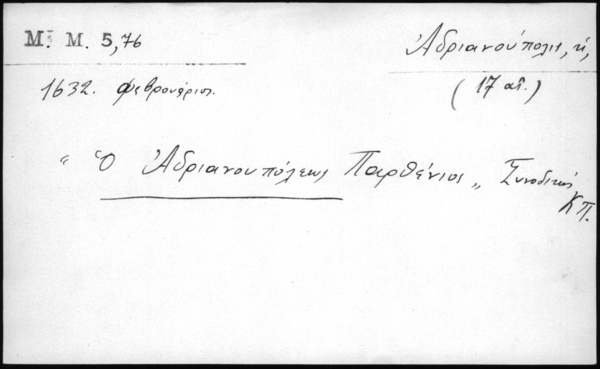 M. M. 5,76
Ἀδριανούπολις, ἡ,
(17 αἰ.)
1632. Φεβρουάριος.
"Ὁ Ἀδριανουπόλεως Παρθένιος„ Συνοδικός
ΚΠ.